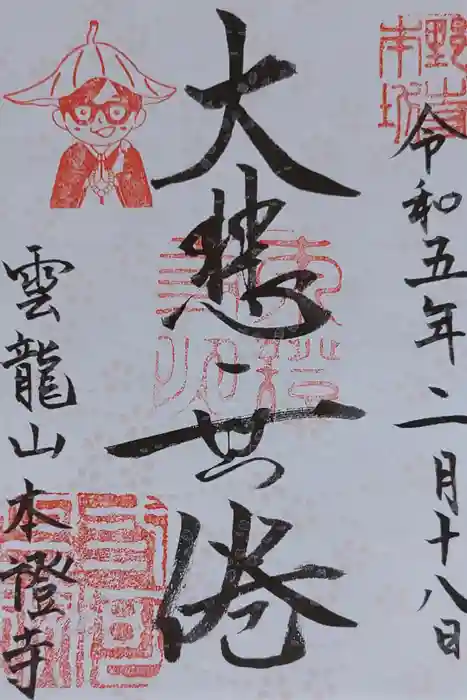 野寺
本坊
令和五年二月十八日
大悲無倦
雲龍山本證寺